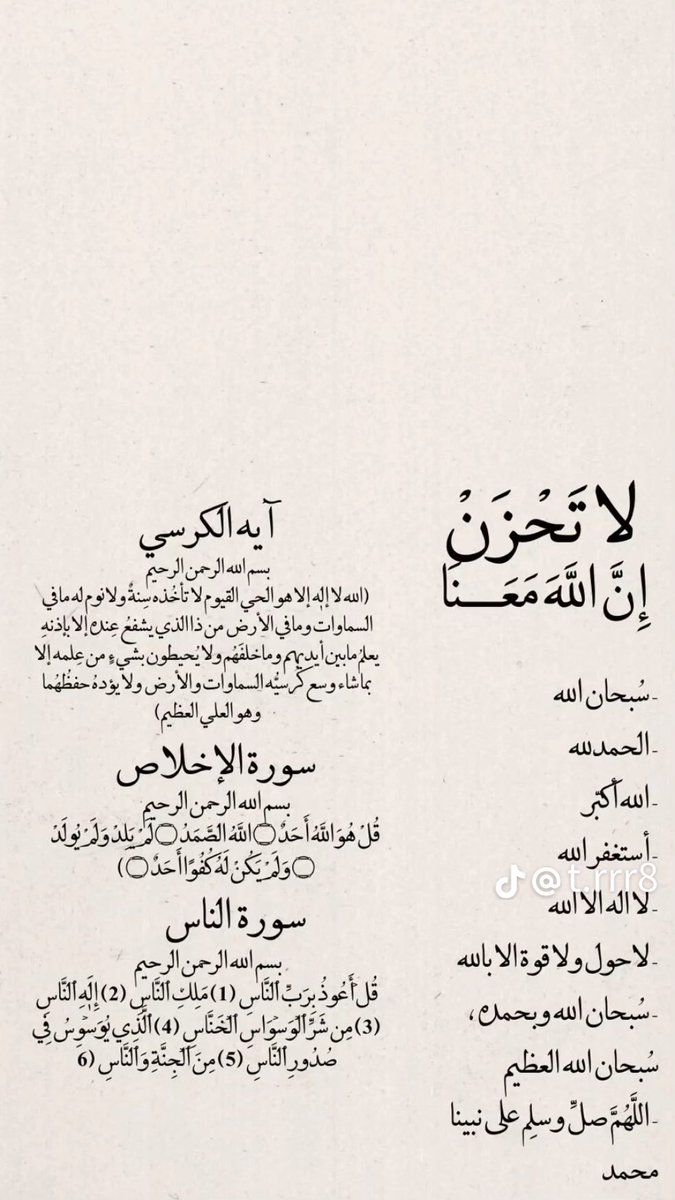 لا تَحْزَنْ
إِنَّ اللَّهَ مَعَــــنَا
-سُبحان الله
-الحمدلله
-الله أكبر
-أستغفر الله
-لا اله الا الله
-لاحول ولا قوة الا بالله
-سُبحان الله وبحمده،
سُبحان الله العظيم
-اللَّهُمَّ صلِّ وسلِم على نبينا
محمد
آيه الكرسي
بسم الله الرحمن الرحيم
(الله لا إله إلا هو الحي القيوم لا تأخُذه سِنةٌ ولا نوم له مافي
السماوات ومافي الأرض من ذا الذي يشفعُ عِنده إلا بإذنهِ
يعلمُ مابين أيديهم وماخلفَهُم ولا يُحيطون بشيءٍ من عِلمه إلا
بماشاء وسع كُرسيُّه السماوات والأرض ولا يؤدهُ حفظُهُما
وهو العلي العظيم)
سورة الإخلاص
بسم الله الرحمن الرحيم
قُلْ هُوَ اللَّهُ أَحَدٌ۝ اللَّهُ الصَّمَدُ۝ لَمْ يَلِدْ وَلَمْ يُولَدْ
۝ وَلَمْ يَكُنْ لَهُ كُفُوًا أَحَدٌ۝)
سورة الناس
بسم الله الرحمن الرحيم
قُلْ أَعُوذُ بِرَبِّ ٱلنَّاسِ (1) مَلِكِ ٱلنَّاسِ (2) إِلَٰهِ ٱلنَّاسِ
(3) مِن شَرِّ ٱلْوَسْوَاسِ ٱلْخَنَّاسِ (4) ٱلَّذِي يُوَسْوِسُ فِي
صُدُورِ ٱلنَّاسِ (5) مِنَ ٱلْجِنَّةِ وَٱلنَّاسِ (6
@t.rrr8